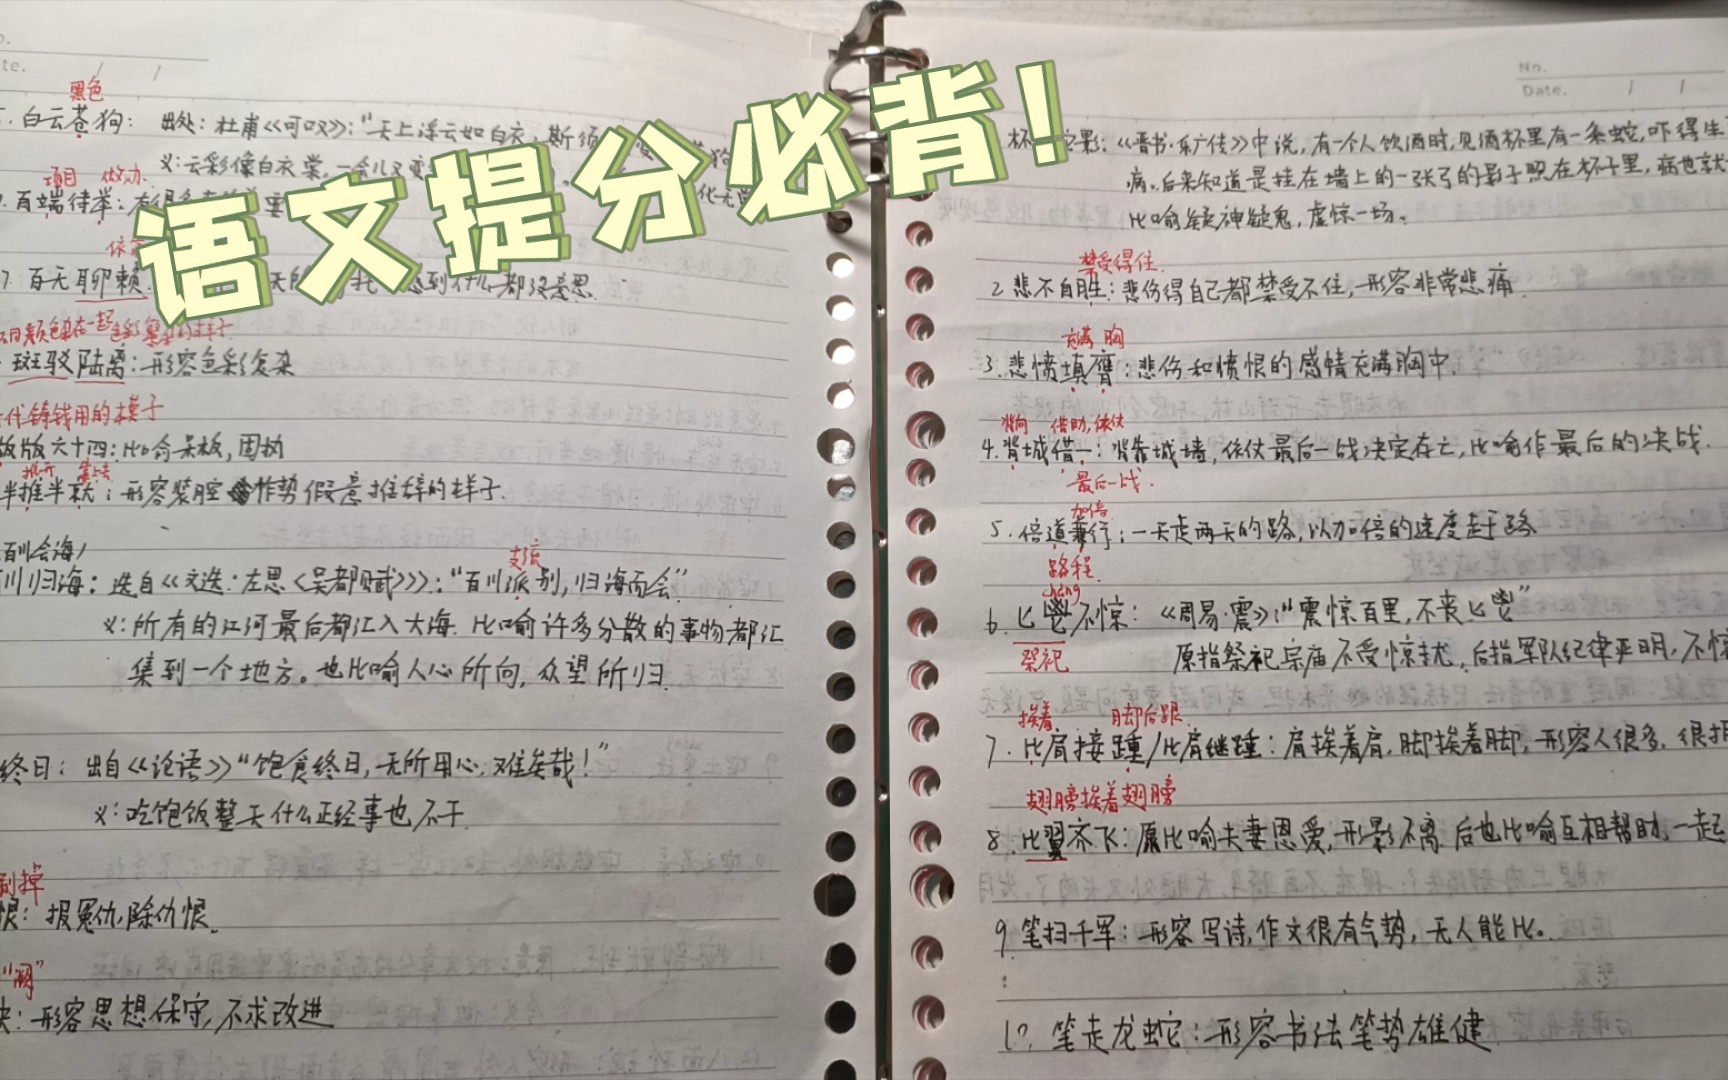 语文提分必背!
te.
黑色
白云苍狗: 出处: 杜甫《可叹》:"天上浮云如白衣,斯须
义:云彩像白衣裳,一会儿又变
项目 做,办
百端待举:
7. 百无聊赖 感到什么都没意思
斑驳陆离:形容色彩复杂
代铸钱用的模子
版版六十四:比喻呆板,固执
推开 靠上去
半推半就:形容装腔作势假意推辞的样子.
支流
川归海: 选自《文选·左思〈吴都赋〉》:"百川派别,归海而会"
义:所有的江河最后都汇入大海.比喻许多分散的事物都汇
集到一个地方。也比喻人心所向,众望所归.
终日: 出自《论语》"饱食终日,无所用心,难矣哉!"
义:吃饱饭整天什么正经事也不干.
恨:报冤仇,除仇恨.
形容思想保守,不求改进
No.
Date. / /
杯 影:《晋书·乐广传》中说,有一个人饮酒时,见酒杯里有一条蛇,吓得生
病。后来知道是挂在墙上的一张弓的影子照在杯子里,病也就
比喻疑神疑鬼,虚惊一场。
禁受得住.
2 悲不自胜:悲伤得自己都禁受不住,形容非常悲痛
充满 胸
3. 悲愤填膺:悲伤和愤恨的感情充满胸中.
背向 借助,依仗
4. 背城借一:背靠城墙,依仗最后一战决定存亡,比喻作最后的决战.
最后一战.
加倍
5. 倍道兼行:一天走两天的路,以加倍的速度赶路
路程.
chàng
6. 匕鬯不惊:《周易·震》:"震惊百里,不丧匕鬯"
祭祀 原指祭祀宗庙不受惊扰,后指军队纪律严明,不惊
挨着 脚后跟.
7. 比肩接踵/比肩继踵:肩挨着肩,脚挨着脚,形容人很多,很拥
翅膀挨着翅膀
8. 比翼齐飞:原比喻夫妻恩爱,形影不离.后也比喻互相帮助,一起
9. 笔扫千军:形容写诗,作文很有气势,无人能比。
笔走龙蛇:形容书法笔势雄健